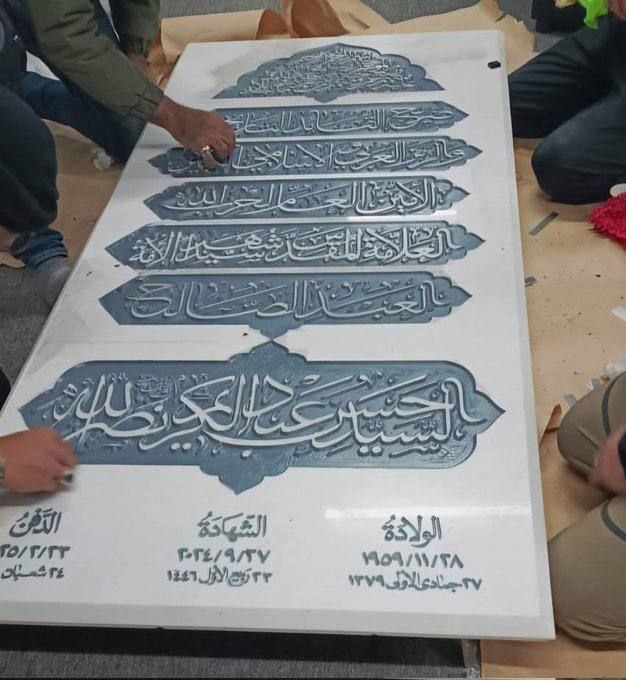 ضريح القائد التاريخي
والرمز العربي والإسلامي
الأمين العام لحزب الله
العلامة المقدس شهيد الأمة
العبد الصالح
السيد حسن عبد الكريم نصر الله
الولادة الشهادة الدفن
١٩٥٩/١١/٢٨ ٢٠٢٤/٩/٢٧ ٢٥/٢/٢٣
٢٧ جمادى الأولى ١٣٧٩ ٢٣ ربيع الأول ١٤٤٦ ٢٤ شعبان